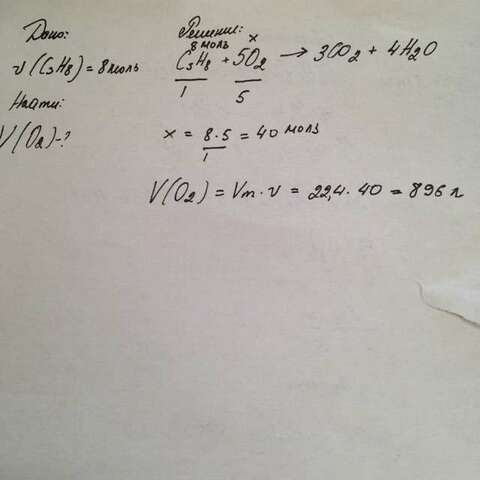 Дано:
ν(C3H8) = 8 моль
Найти:
V(O2)-?
Решение:
8 моль x
C3H8 + 5O2 → 3CO2 + 4H2O
1 5
x = 8·5/1 = 40 моль
V(O2) = Vm·ν = 22,4·40 = 896 л